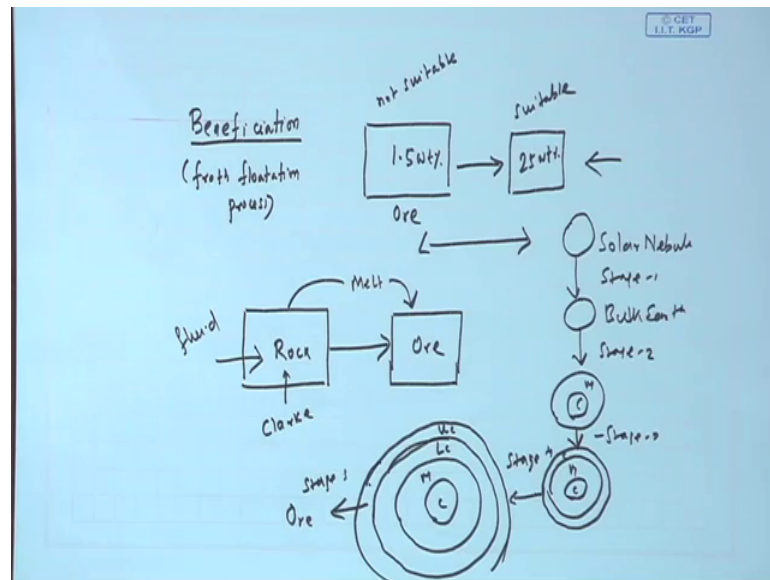 © CET
I.I.T. KGP
not suitable
suitable
Beneficiation
(froth floatation
process)
1.5 wt%
25 wt%
Ore
Solar Nebula
Stage-1
Bulk Earth
Stage-2
M
C
Stage-3
M
C
Stage 4
UC
LC
M
C
Stage 5
Ore
Melt
fluid
Rock
Ore
Clarke